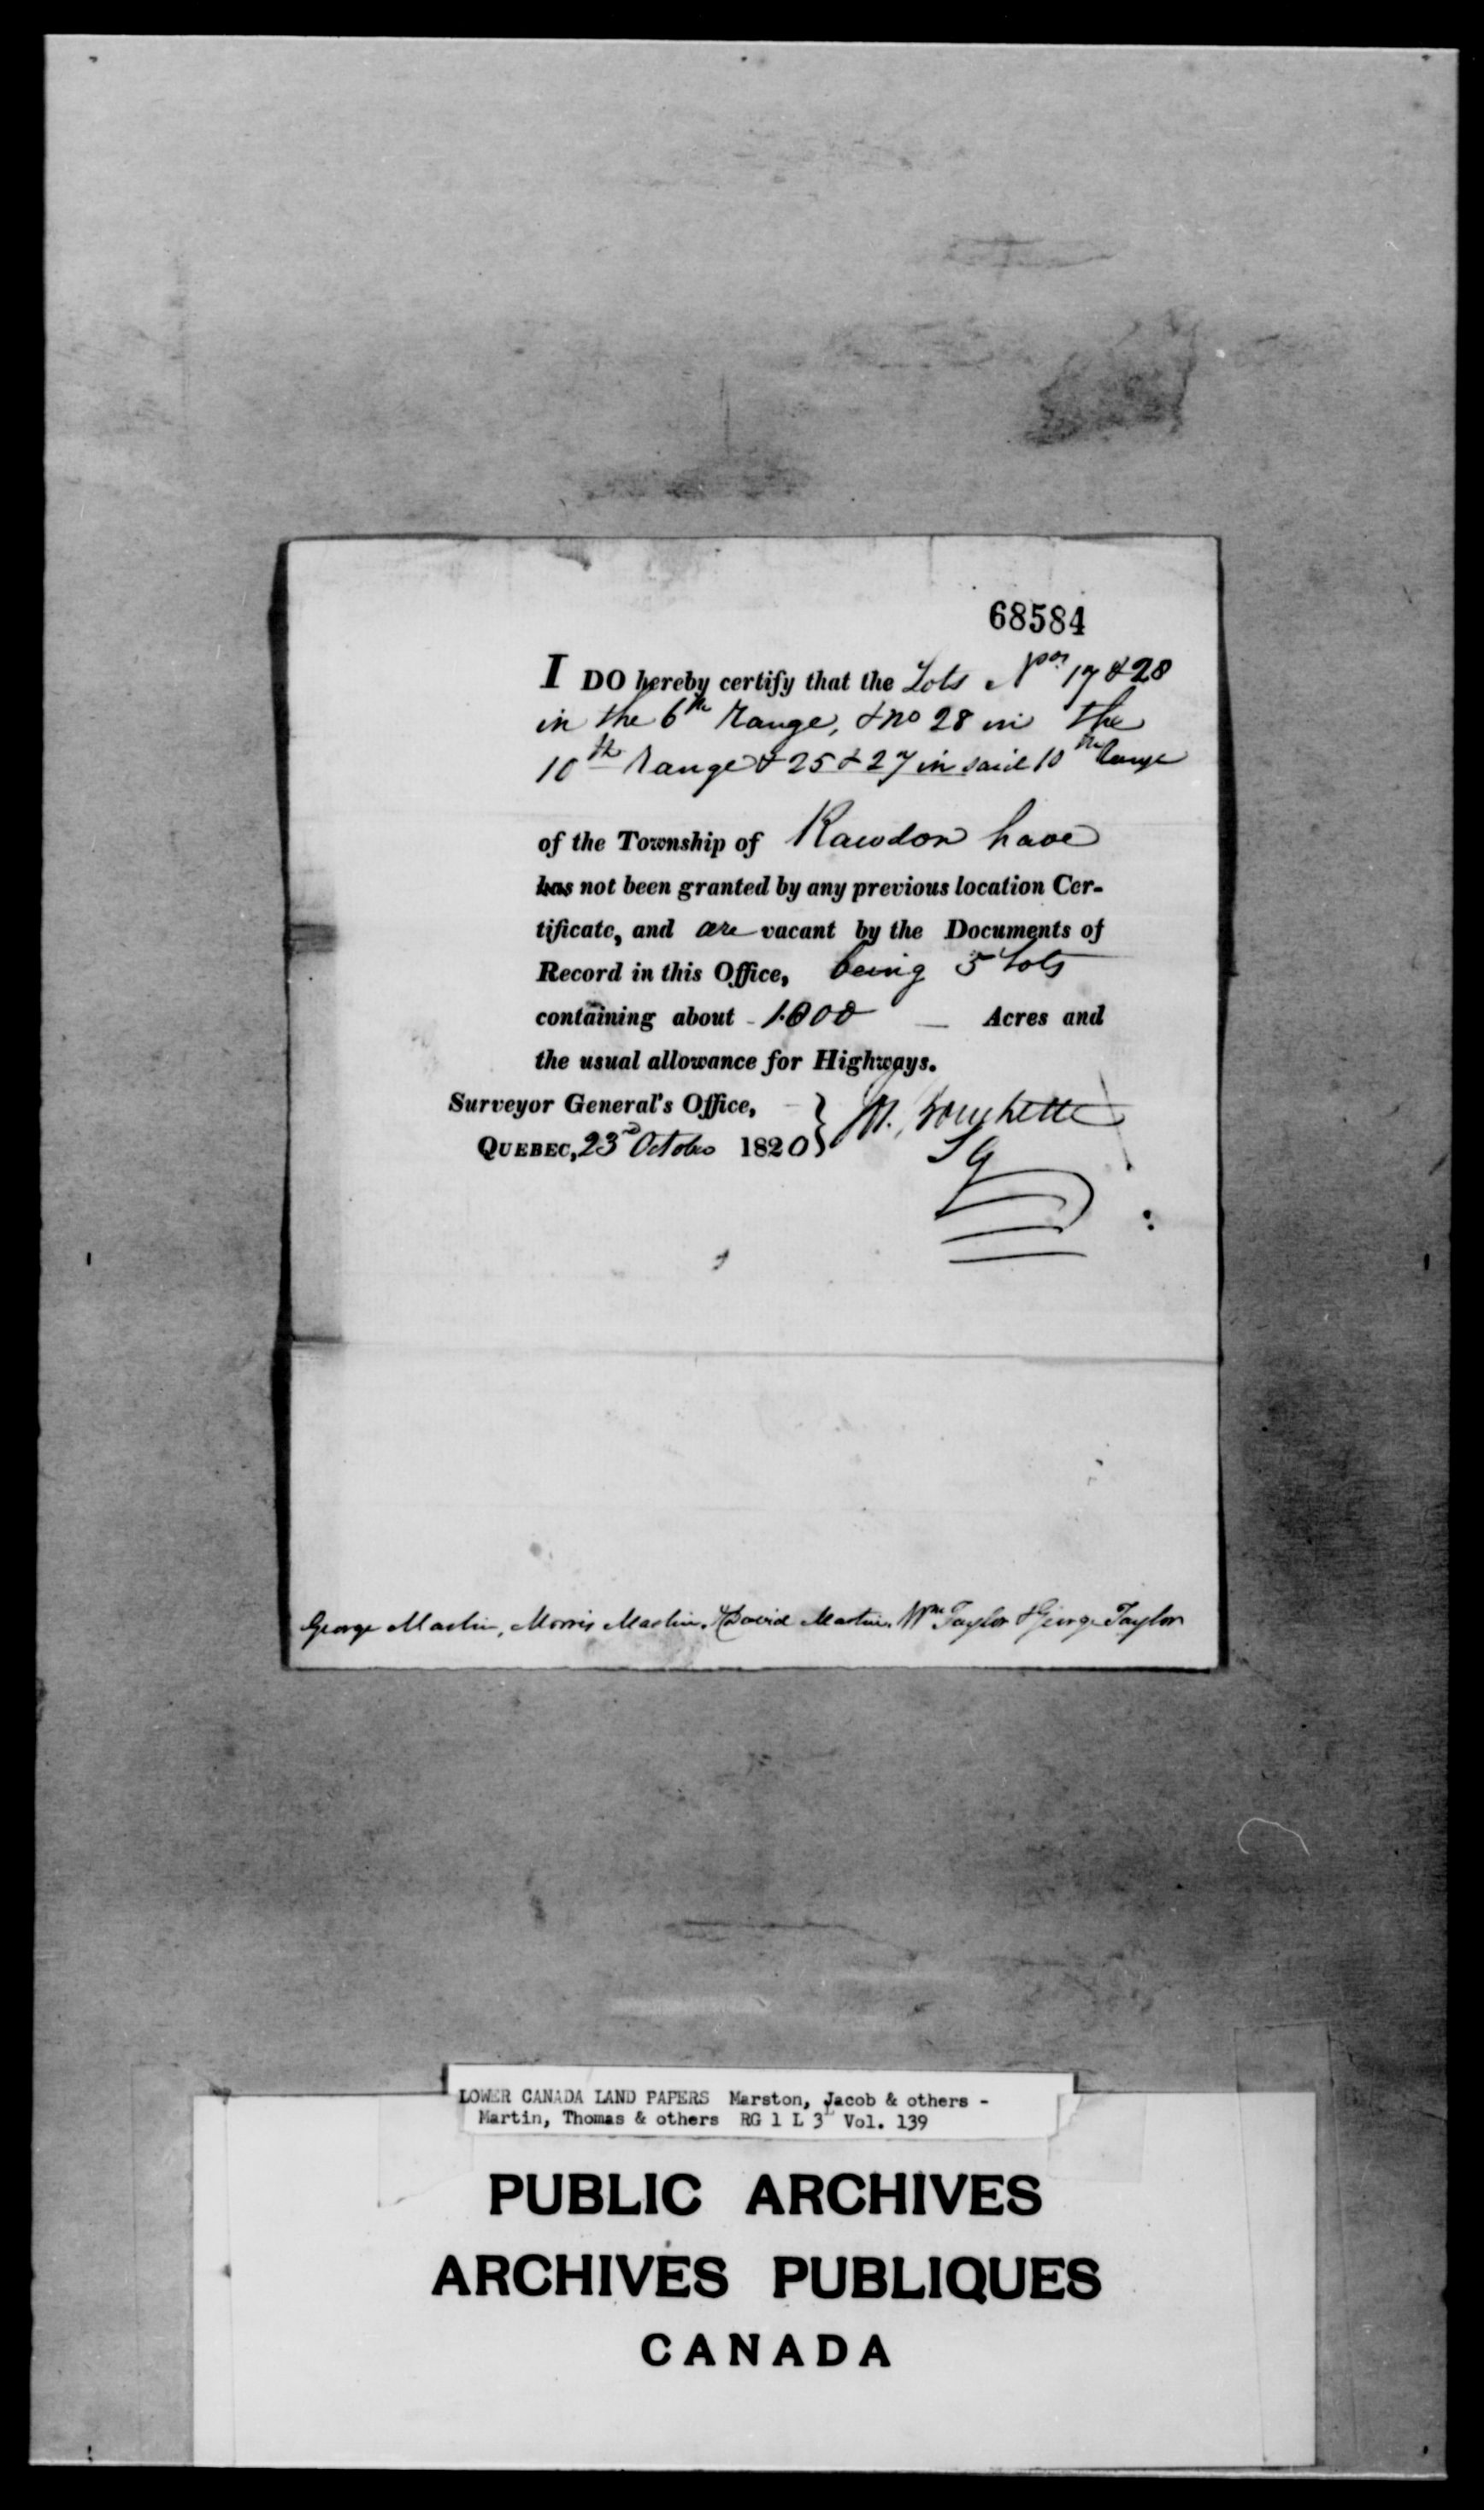 68584
I DO hereby certify that the Lots Nos. 17 & 28
in the 6th Range, & no 28 in the
10th Range & 25 & 27 in said 10th Range
of the Township of Rawdon have
has not been granted by any previous location Cer-
tificate, and are vacant by the Documents of
Record in this Office, being 5 Lots
containing about - 1.000 — Acres and
the usual allowance for Highways.
Surveyor General's Office, } Bouchette
QUEBEC, 23d October 1820 } SG
George Martin, Morris Martin, & David Martin, Wm Taylor & George Taylor
LOWER CANADA LAND PAPERS Marston, Jacob & others -
Martin, Thomas & others RG 1 L 3L Vol. 139
PUBLIC ARCHIVES
ARCHIVES PUBLIQUES
CANADA